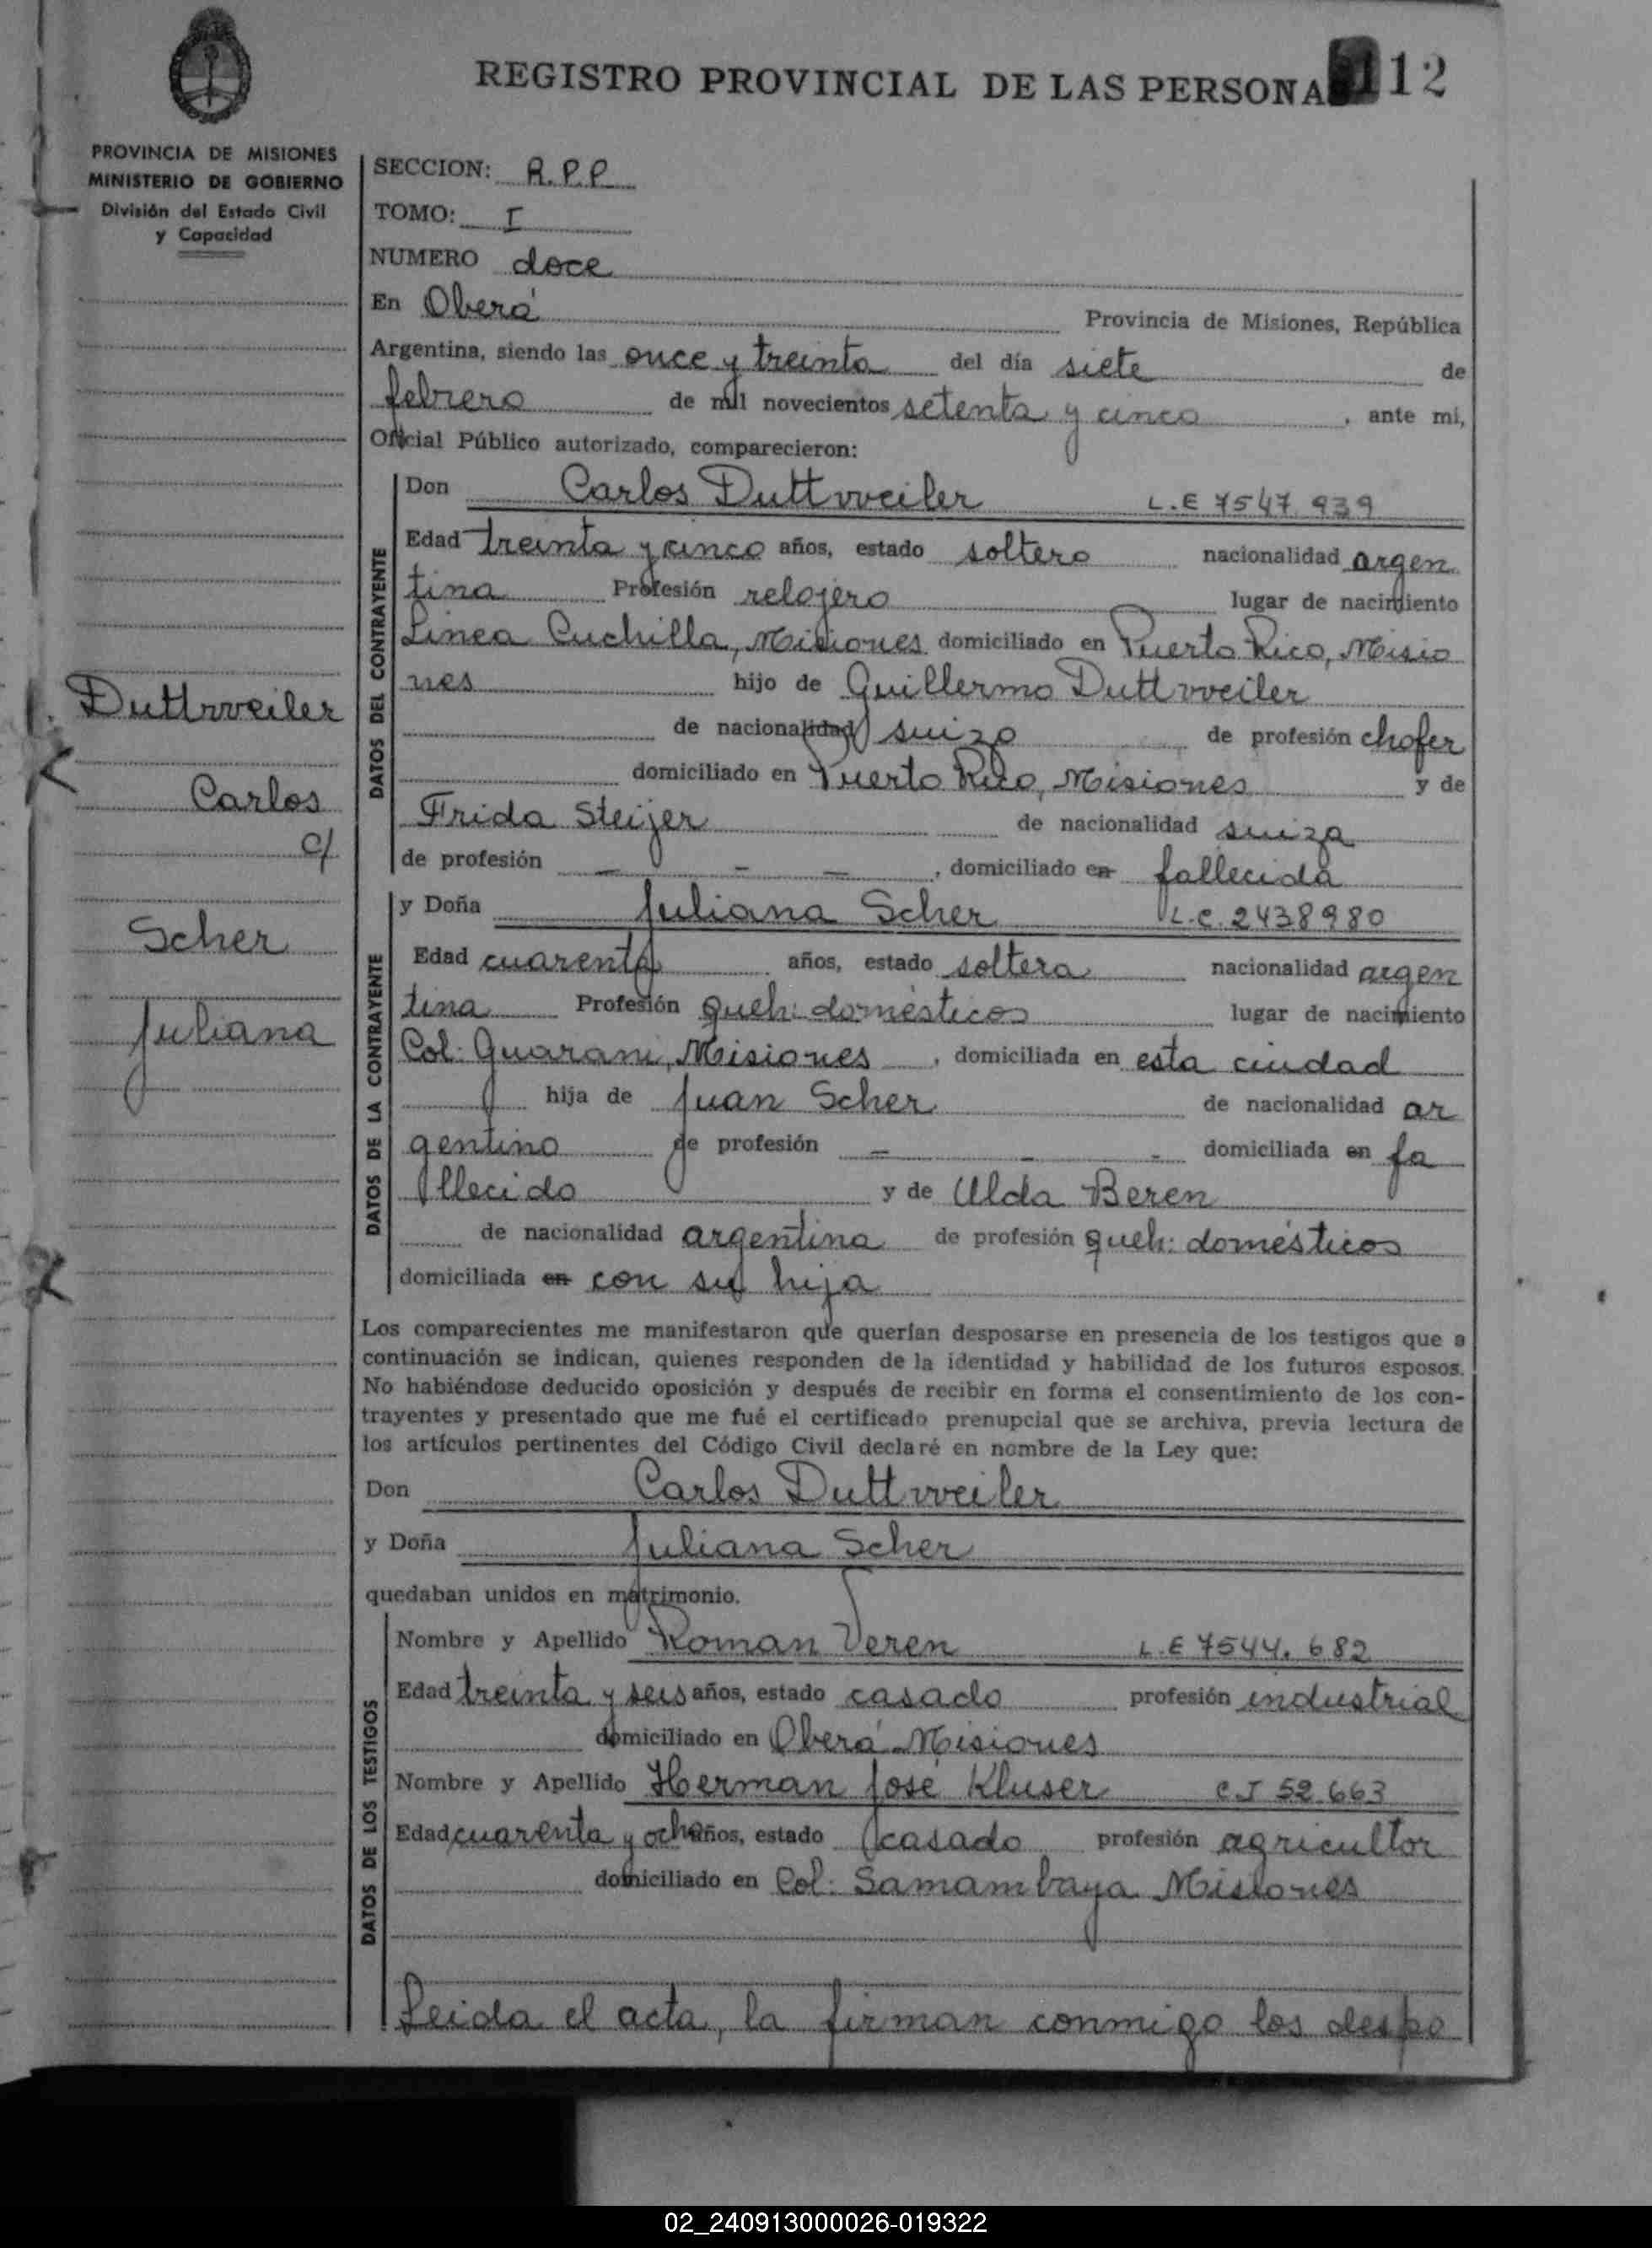 REGISTRO PROVINCIAL DE LAS PERSONA 112
PROVINCIA DE MISIONES
MINISTERIO DE GOBIERNO
División del Estado Civil
y Capacidad
SECCION: R.P.P
TOMO: I
NUMERO doce
En Oberá Provincia de Misiones, República
Argentina, siendo las once y treinta del día siete de
febrero de mil novecientos setenta y cinco, ante mi,
Oficial Público autorizado, comparecieron:
DATOS DEL CONTRAYENTE
Don Carlos Duttweiler L.E 7547.939
Edad treinta y cinco años, estado soltero nacionalidad argen
tina Profesión relojero lugar de nacimiento
Linea Cuchilla, Misiones domiciliado en Puerto Rico, Misio
nes hijo de Guillermo Duttweiler
de nacionalidad suizo de profesión chofer
domiciliado en Puerto Rico, Misiones y de
Frida Steijer de nacionalidad suiza
de profesión — - — , domiciliado en fallecida
DATOS DE LA CONTRAYENTE
y Doña Juliana Scher L.C. 2438980
Edad cuarenta años, estado soltera nacionalidad argen
tina Profesión queh: domésticos lugar de nacimiento
Col: Guarani, Misiones, domiciliada en esta ciudad
hija de Juan Scher de nacionalidad ar
gentino de profesión — - - domiciliada en fa
llecido y de Ulda Beren
de nacionalidad argentina de profesión queh: domésticos
domiciliada en con su hija
Los comparecientes me manifestaron que querían desposarse en presencia de los testigos que a
continuación se indican, quienes responden de la identidad y habilidad de los futuros esposos.
No habiéndose deducido oposición y después de recibir en forma el consentimiento de los con-
trayentes y presentado que me fué el certificado prenupcial que se archiva, previa lectura de
los artículos pertinentes del Código Civil declaré en nombre de la Ley que:
Don Carlos Duttweiler
y Doña Juliana Scher
quedaban unidos en matrimonio.
DATOS DE LOS TESTIGOS
Nombre y Apellido Roman Veren L.E 7544.682
Edad treinta y seis años, estado casado profesión industrial
domiciliado en Oberá Misiones
Nombre y Apellido Herman José Kluser C.I 52.663
Edad cuarenta y ocho años, estado casado profesión agricultor
domiciliado en Col: Samambaya Misiones
Leida el acta, la firman conmigo los despo
Duttweiler
Carlos
c/
Scher
Juliana
02_240913000026-019322